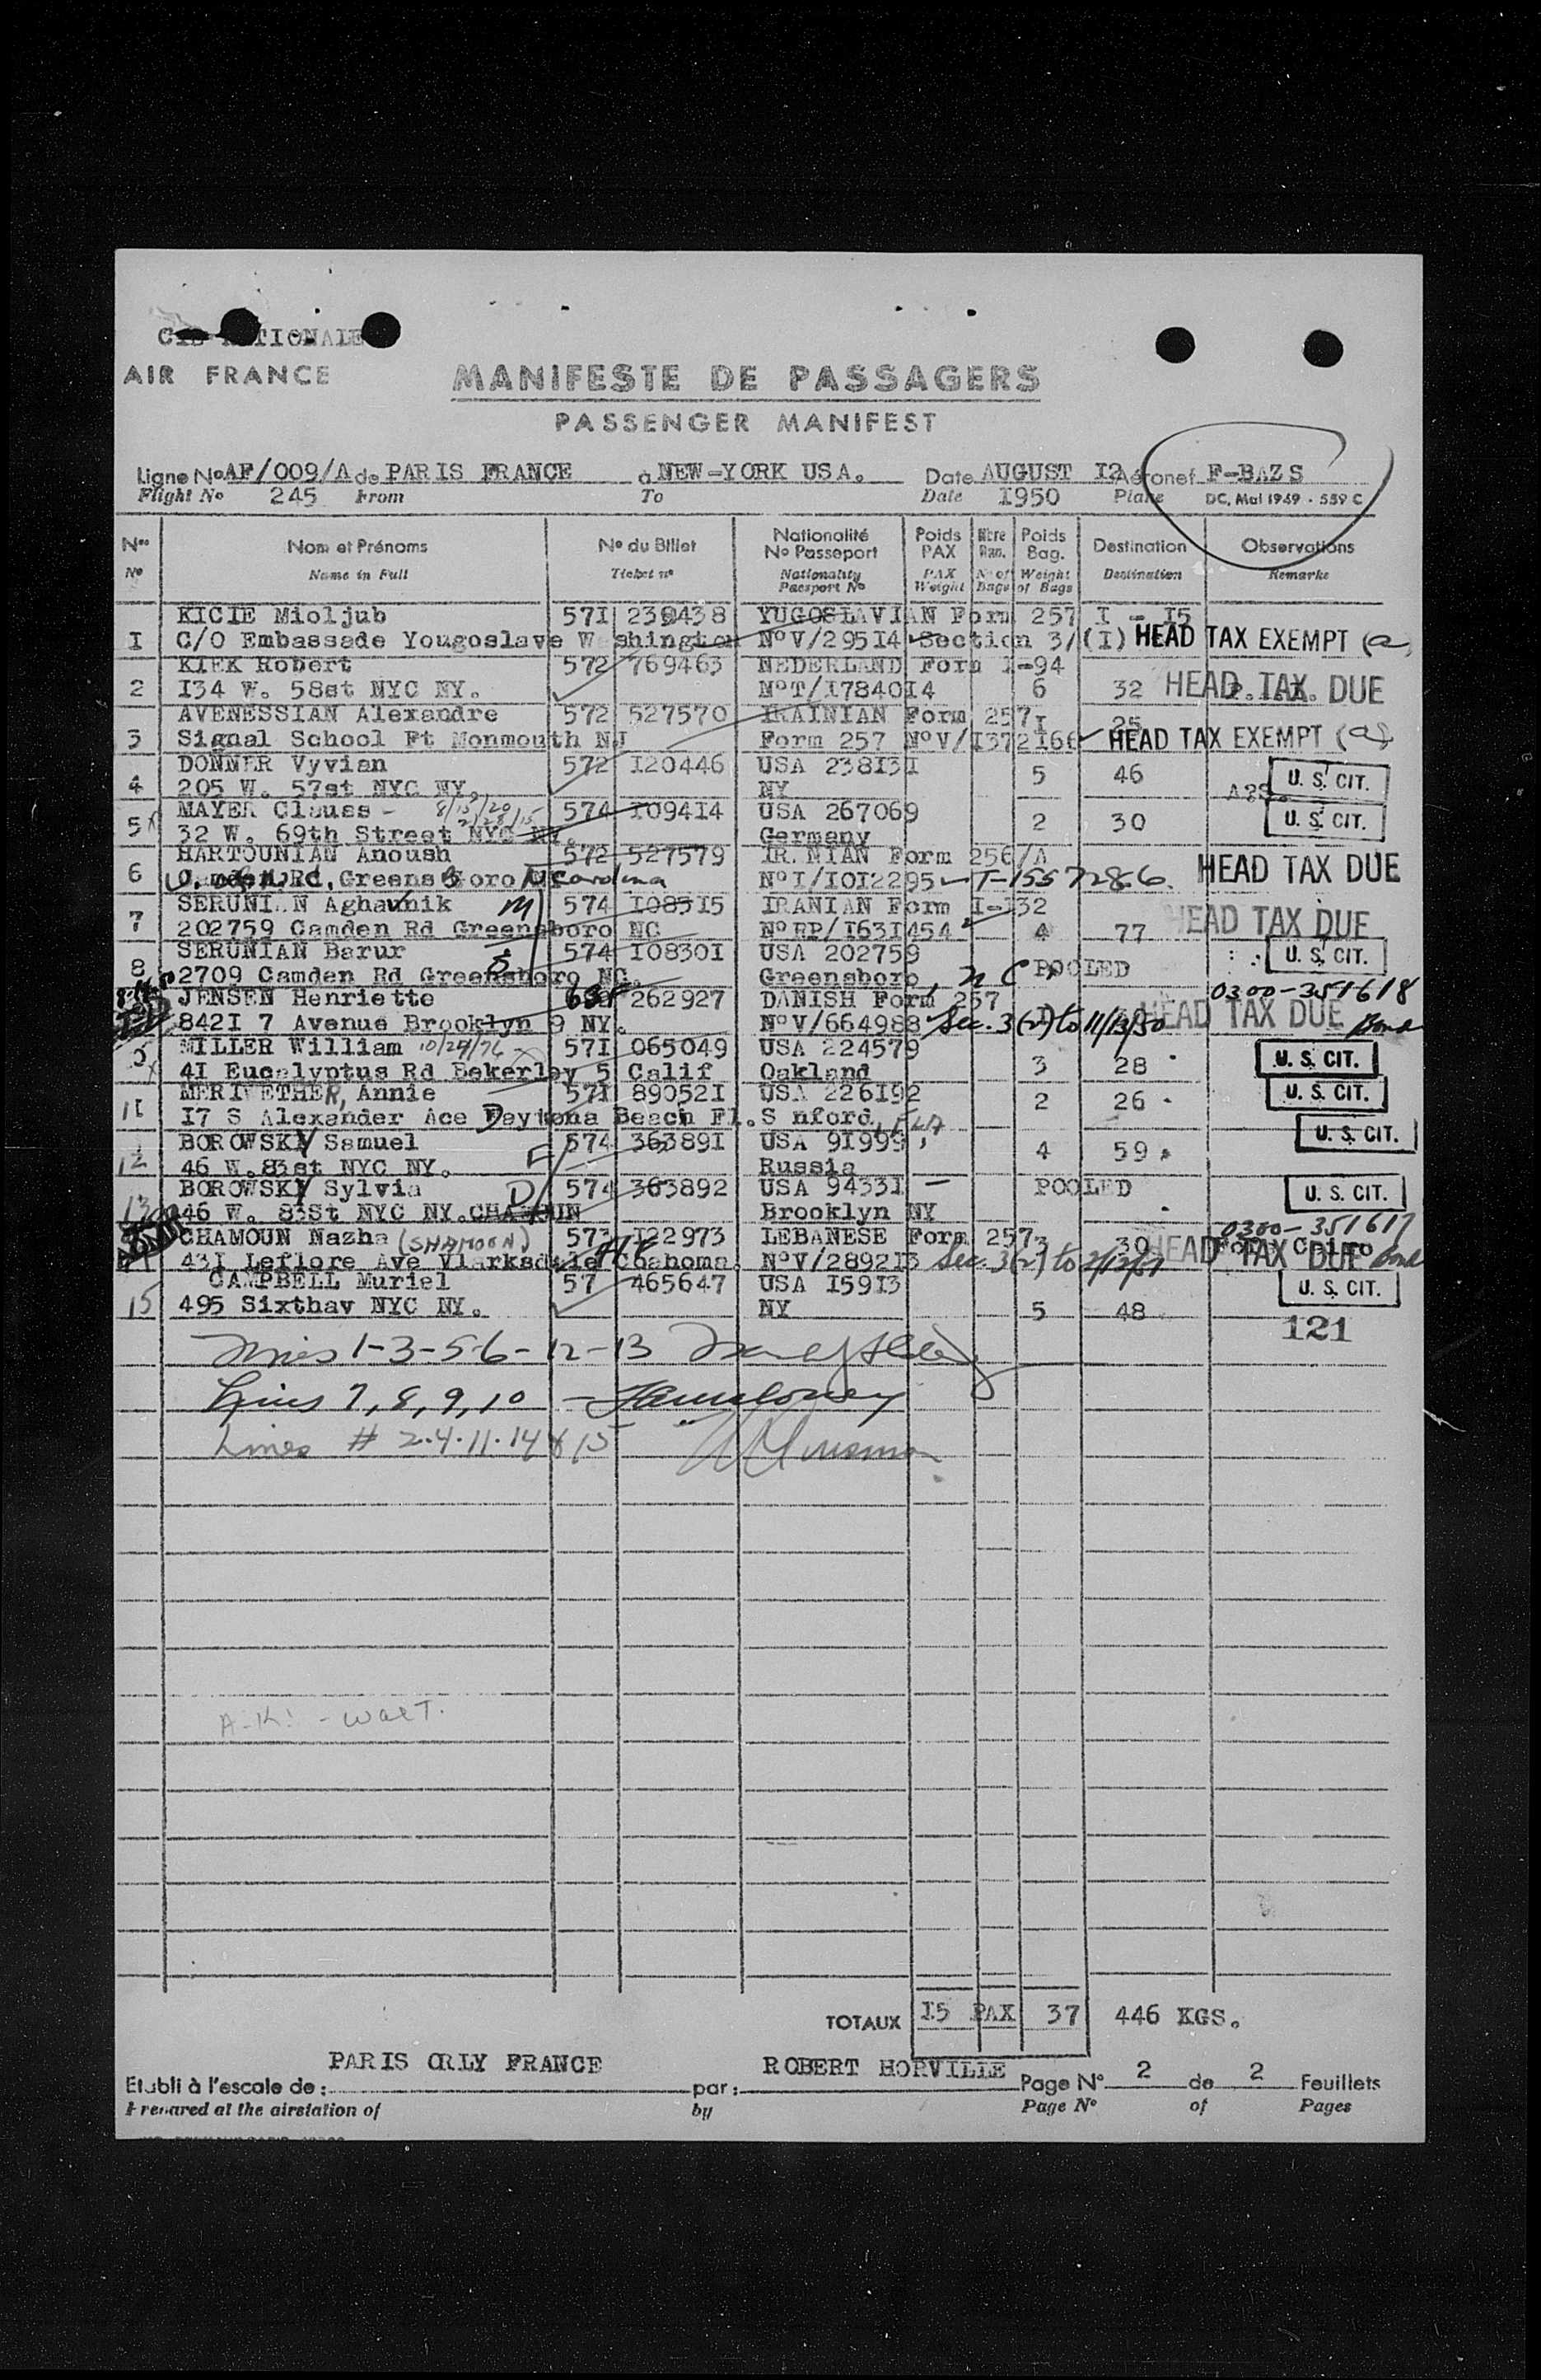 CIE NATIONALE
AIR FRANCE
MANIFESTE DE PASSAGERS
PASSENGER MANIFEST
Ligne No AF/009/A de PARIS FRANCE à NEW-YORK USA. Date AUGUST I2 Aéronef F-BAZS
Flight No 245 From To Date I950 Plane DC, Mai 1949 - 559 C
Nos Nom et Prénoms No du Billet Nationalité No Passeport Poids PAX Nbre Poids Bag. Destination Observations
No Name in Full Ticket no Nationality Passport No PAX Weight No of Bags Weight of Bags Destination Remarks
KICIE Mioljub 57I 239438 YUGOSLAVIAN Form 257 I - I5
I C/O Embassade Yougoslave Washington NoV/295I4 Section 3/(I) HEAD TAX EXEMPT (a)
KIEK Robert 572 769463 NEDERLAND Form I-94
2 I34 W. 58st NYC NY. NoT/I7840I4 6 32 HEAD TAX DUE
AVENESSIAN Alexandre 572 527570 IRAINIAN Form 257 I 25
3 Signal School Ft Monmouth NJ Form 257 NoV/I372I66 HEAD TAX EXEMPT (a)
DONNER Vyvian 572 I20446 USA 238I3I 5 46 U. S. CIT.
4 205 W. 57st NYC NY.
NY
MAYER Clauss - 574 I09414 USA 267069 2 30 U. S. CIT.
5 32 W. 69th Street NYC NY Germany
HARTOUNIAN Anoush 572 527579 IR.NIAN Form 256/A
6 Rd, Greensboro N Carolina NoI/I0I2295 T-1557286. HEAD TAX DUE
SERUNI..N Aghavnik M 574 I085I5 IRANIAN Form I-I32
7 202759 Camden Rd Greensboro NC NoRP/I63I454 4 77 HEAD TAX DUE
SERUNIAN Barur S 574 I08301 USA 202759 U. S. CIT.
8 2709 Camden Rd Greensboro NC. Greensboro, N C POOLED
JENSEN Henriette 262927 DANISH Form 257 0300-351618
842I 7 Avenue Brooklyn 9 NY. NoV/664988 Sec. 3(2) to 11/13/50 HEAD TAX DUE Bond
MILLER William 10/29/76 57I 065049 USA 224579
4I Eucalyptus Rd Bekerley 5 Calif Oakland 3 28 U. S. CIT.
MERIVETHER, Annie 57I 89052I USA 226I92 2 26 U. S. CIT.
11 I7 S Alexander Ace Daytona Beach Fl. S nford, FLA
BOROWSKY Samuel 574 36389I USA 9I999 4 59 U. S. CIT.
12 46 W. 83st NYC NY. Russia
BOROWSKY Sylvia D 574 363892 USA 9433I - POOLED U. S. CIT.
13 46 W. 83St NYC NY. CHAMOUN Brooklyn NY
CHAMOUN Nazha (SHAMOON) 573 I22973 LEBANESE Form 257 3 30 0300-351617
43I Leflore Ave Vlarksdale Coahoma. NoV/2892I3 Sec. 3(2) to HEAD TAX DUE Bond
CAMPBELL Muriel 57 465647 USA I59I3 U. S. CIT.
15 495 Sixthav NYC NY. NY 5 48
121
Lines 1-3-5-6-12-13
Lines 7, 8, 9, 10 -
Lines # 2.4.11.14 & 15
TOTAUX I5 PAX 37 446 KGS.
PARIS ORLY FRANCE ROBERT HORVILLE
Etabli à l'escale de : par : Page No 2 de 2 Feuillets
Prepared at the airstation of by Page No of Pages